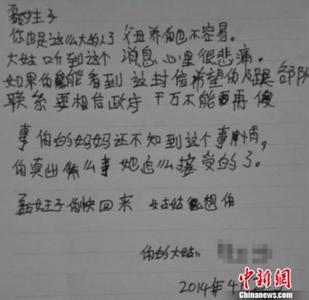 磊娃子
你也是这么大的人了 父母养的也不容易。
大姑听到这个消息心里很悲痛。
如果你能够看到这封信希望你跟部队
联系要相信政府 千万不能再傻
事 你的妈妈还不知到这个事情，
你真出什么事她怎么接受的了。
磊娃子你快回来 姑姑很想你
你的大姑：
2014年4
中新网